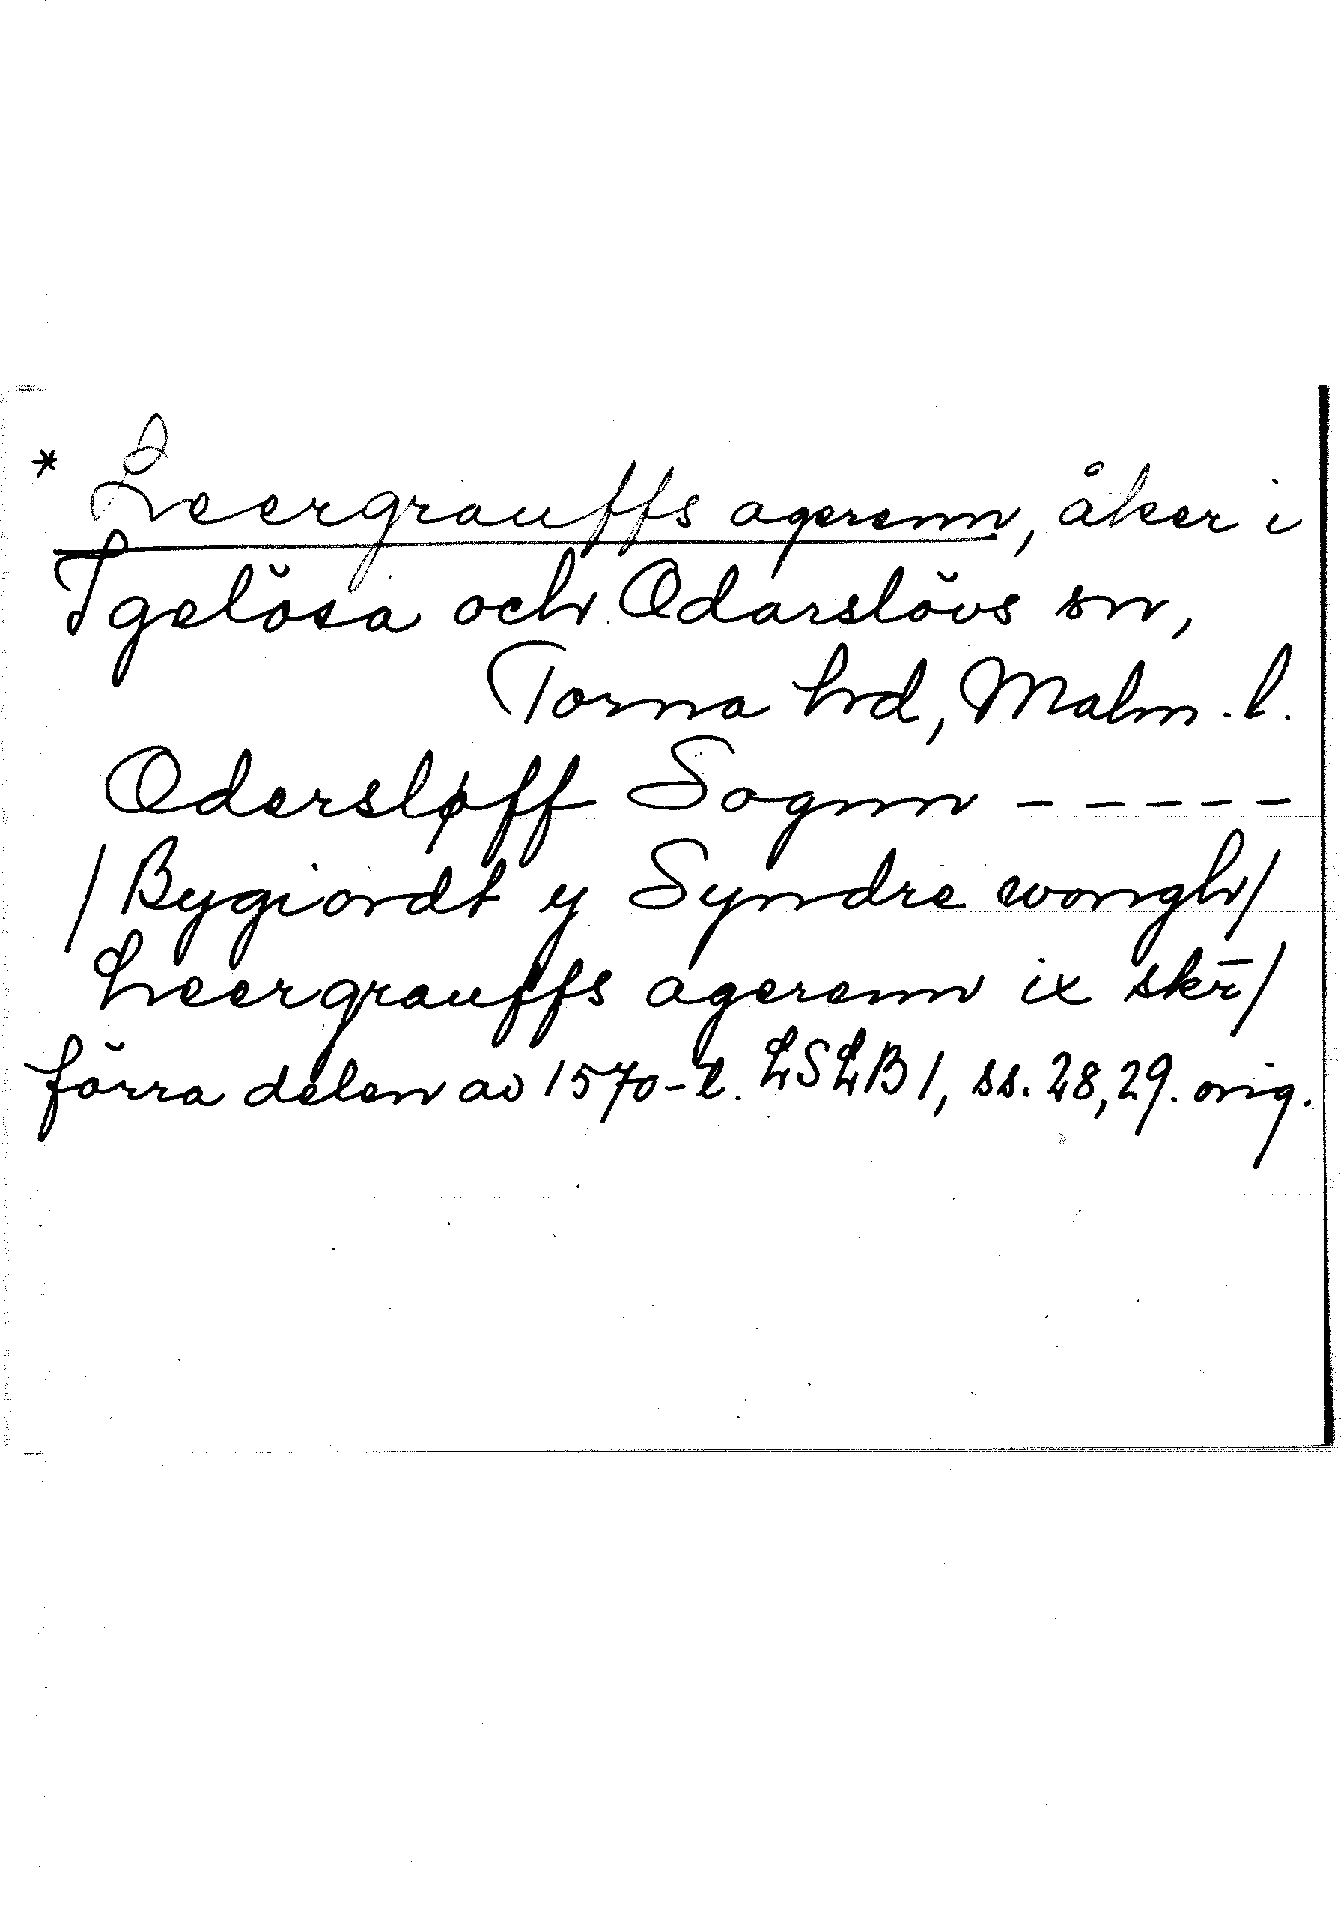 * Leergrauffs agerenn, åker i
Igelösa och Odarslövs sn,
Torna hd, Malm. l.
Odersløff Sognn -----
/ Bygiordt y Syndre wongh /
Leergrauffs agerenn ix skr̄ /
förra delen av 1570-t. LSLB 1, ss. 28, 29. orig.